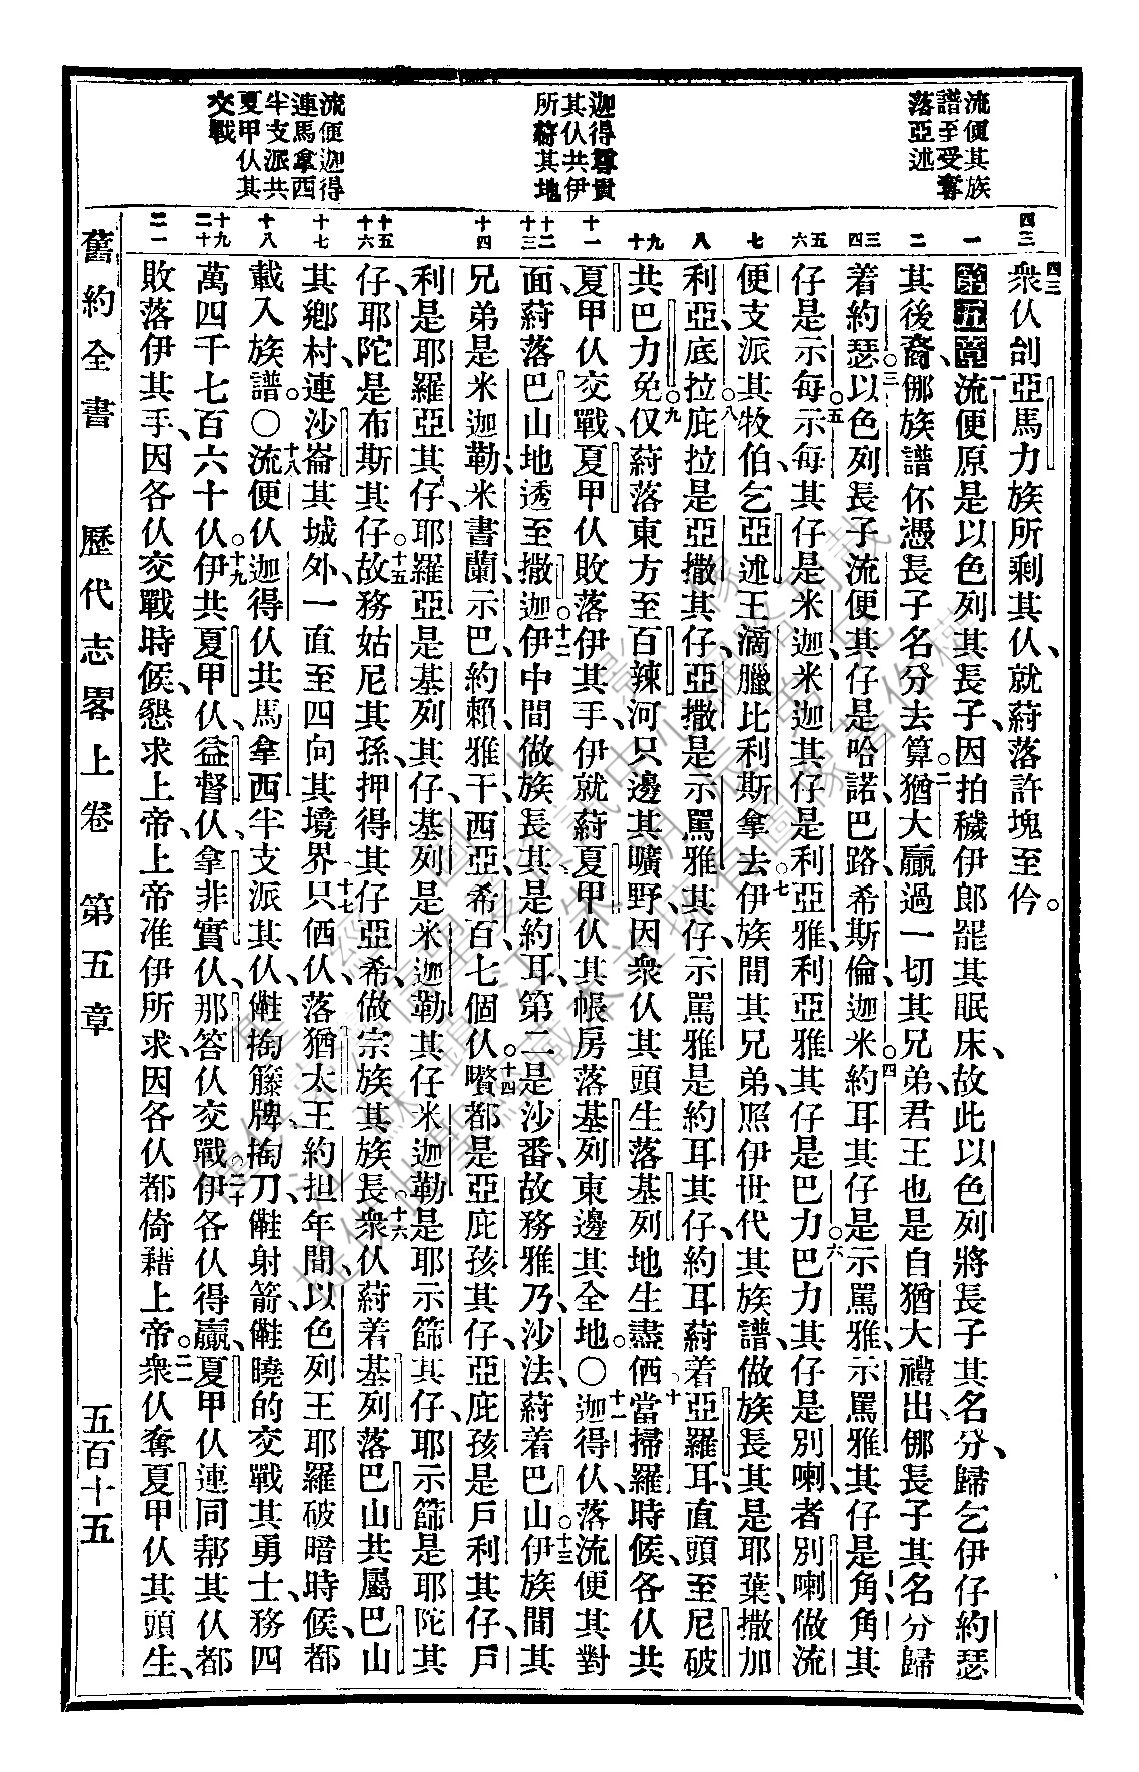 流便其族
譜至受奪
落亞述
迦得尊貴
其仈共伊
所蒔其地
流便迦得
連馬拿西
半支派共
夏甲仈其
交戰
四三
一
二
三四
五六
七
八
九十
十一
十二十三
十四
十五十六
十七
十八
十九二十
二一
四三衆仈刣亞馬力族所剩其仈、就蒔落許塊至仱。
第五章一流便原是以色列其長子、因拍穢伊郎罷其眠床、故此以色列將長子其名分、歸乞伊仔約瑟
其後裔、㑚族譜伓憑長子名分去算。二猶大贏過一切其兄弟、君王也是自猶大禮出、㑚長子其名分歸
着約瑟。三以色列長子流便其仔是哈諾、巴路、希斯倫、迦米。四約耳其仔是示罵雅、示罵雅其仔是角、角其
仔是示每。五示每其仔是米迦、米迦其仔是利亞雅、利亞雅其仔是巴力。六巴力其仔是別喇、者別喇做流
便支派其牧伯、乞亞述王滴臘比利斯拿去。七伊族間其兄弟、照伊世代其族譜、做族長其是耶葉、撒加
利亞、底拉庇拉是亞撒其仔、亞撒是示罵雅其仔、示罵雅是約耳其仔、約耳蒔着亞羅耳、直頭至尼破
共巴力免。九仅蒔落東方至百辣河只邊其曠野、因衆仈其頭生落基列地生盡㑚。十當掃羅時候、各仈共
夏甲仈交戰、夏甲仈敗落伊其手、伊就蒔夏甲仈其帳房、落基列東邊其全地。〇十一迦得仈落流便其對
面、蒔落巴山地透至撒迦。十二伊中間做族長其是約耳、第二是沙番、故務雅乃、沙法、蒔着巴山。十三伊族間其
兄弟是米迦勒、米書蘭、示巴、約賴、雅干、西亞、希百七個仈。十四㬰都是亞庇孩其仔、亞庇孩是戶利其仔、戶
利是耶羅亞其仔、耶羅亞是基列其仔、基列是米迦勒其仔、米迦勒是耶示篩其仔、耶示篩是耶陀其
仔、耶陀是布斯其仔。十五故務姑尼其孫、押得其仔亞希、做宗族其族長。十六衆仈蒔着基列落巴山共屬巴山
其鄉村、連沙崙其城外、一直至四向其境界。十七只㑚仈、落猶太王約担年間、以色列王耶羅破暗時候、都
載入族譜。〇十八流便仈、迦得仈、共馬拿西半支派其仈、㑚掏籐牌、掏刀、㑚射箭、㑚曉的交戰其勇士、務四
萬四千七百六十仈。十九伊共夏甲仈、益督仈、拿非實仈、那答仈交戰。二十伊各仈得贏、夏甲仈連同帮其仈、都
敗落伊其手、因各仈交戰時候、懇求上帝、上帝准伊所求、因各仈都倚藉上帝。二一衆仈奪夏甲仈其頭生、
舊約全書　歷代志畧上卷　第五章　五百十五